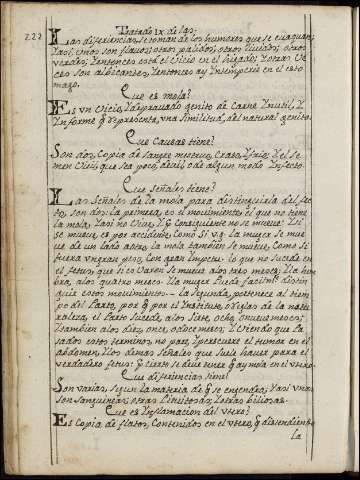 222
Tratado IX de las
Las diferencias se toman de los humores que se evaquan;
Y asi, unos son flavos; otros palidos; otros lividos; otros
virides; Y entonces está el Vicio en el higado; Y otras Ve
ces son albicantes, Y entonces ay Intemperie en el esto
mago.
Que es mola?
Es un Vicio, Y depravado genito de Carne Ynutil, Y
Ynforme q representa, una similitud, del natural genito.
Que Causas tiene?
Son dos, Copia de sangre mestruo, Craso, Y frio; Y el se
men Viril que sea poco, debil, ó de algun modo Infecto.
Que Señales tiene?
Las Señales de la mola para distinguirla del fec
to, son dos: la primera, es el movimiento el que no tiene
la mola, Y asi no Vive, Y q Consiguiente no se mueve: Y si
se mueve, es por accidente, Como si v.g. la muger se mue
ve de un lado a otro, la mola tambien se mueve, Como si
fuera un gran peso, Con gran Impetu; lo que no sucede en
el fetus, que si es Varon se mueve a los tres meses; Y la hem
bra, a los quatro meses. Y la muger Puede facilmte distin
guir estos movimientos. — la Segunda, pertenece al tiem
po del Parto, por q por el Instituto, o reglas de la natu
raleza, el Parto Sucede, a los Siete, ocho, o nueve meses;
Y tambien a los diez, once, o doce meses; Y Viendo que Pa
sados estos terminos, no pare, Y persevere el tumor en el
abdomen, Y los demas Señales que suele haver para el
verdadero fetus: q cierto se deve creer q ay mola en el utero.
Que diferiencias tiene?
Son varias, segun la materia de q se engendra; Y asi unas
son sanguineas; otras Pituitosas; Y otras biliosas.
Que es Ynflamacion del Utero?
Es Copia de flatos, Contenidos en el utero, q distendiendo
la